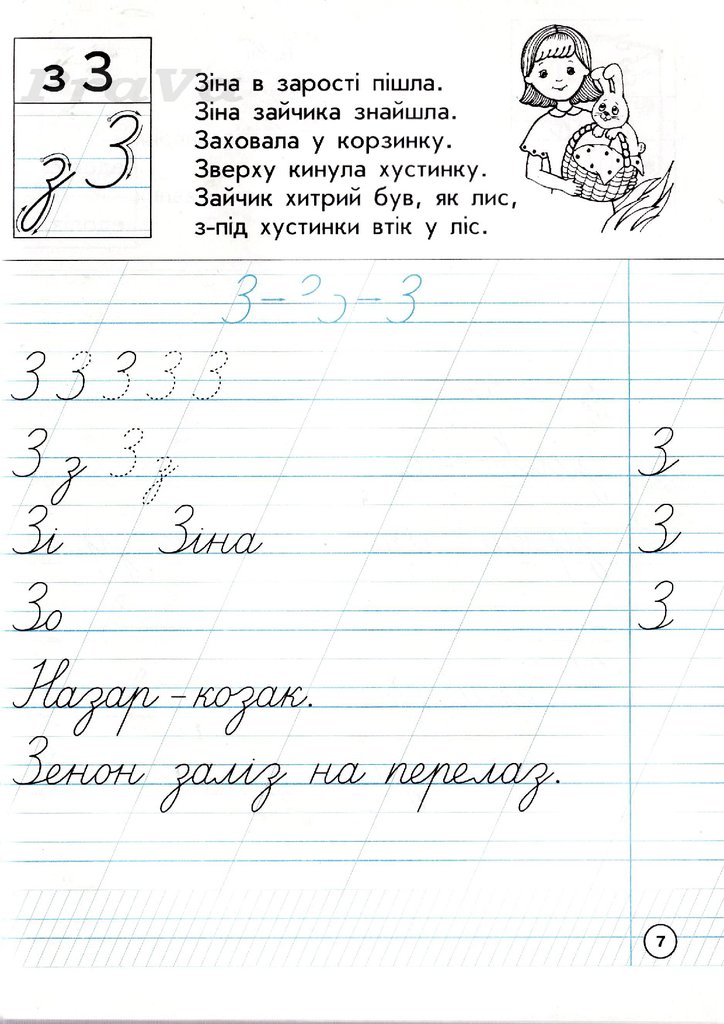 з З
з З
Зіна в зарості пішла.
Зіна зайчика знайшла.
Заховала у корзинку.
Зверху кинула хустинку.
Зайчик хитрий був, як лис,
з-під хустинки втік у ліс.
З З З З З
З з З з З
Зі Зіна З
Зо З
Назар - козак.
Зенон заліз на перелаз.
7